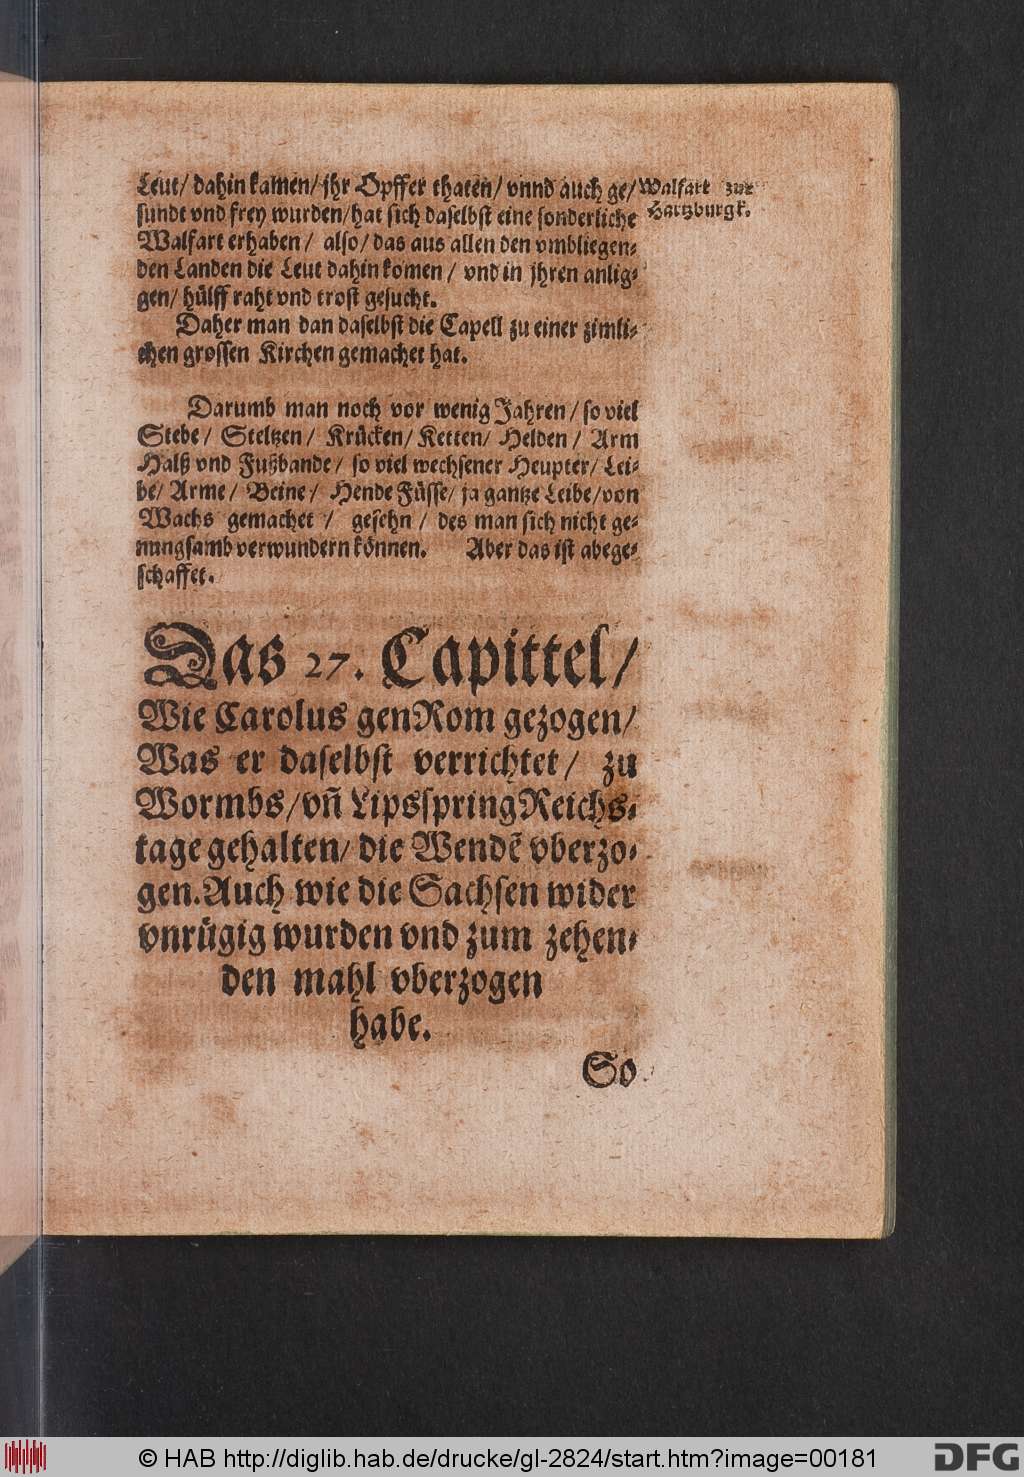 Leut/ dahin kamen/ jhr Opffer thaten/ vnnd auch ge/
sundt vnd frey wurden/ hat sich daselbst eine sonderliche
Walfart erhaben/ also/ das aus allen den vmbliegen-
den Landen die Leut dahin komen/ vnd in jhren anlig-
gen/ hülff raht vnd trost gesucht.
Walfart zur
Hartzburgk.
Daher man dan daselbst die Capell zu einer zimli-
chen grossen Kirchen gemachet hat.
Darumb man noch vor wenig Jahren/ so viel
Stebe/ Steltzen/ Krücken/ Ketten/ Helden/ Arm
Halß vnd Fußbande/ so viel wechsener Heupter/ Lei-
be/ Arme/ Beine/ Hende Füsse/ ja gantze Leibe/ von
Wachs gemachet/ gesehn/ des man sich nicht ge-
nungsamb verwundern können. Aber das ist abege-
schaffet.
Das 27. Capittel/
Wie Carolus gen Rom gezogen/
Was er daselbst verrichtet/ zu
Wormbs/ vñ Lipsspring Reichs-
tage gehalten/ die Wendẽ vberzo-
gen. Auch wie die Sachsen wider
vnrügig wurden vnd zum zehen-
den mahl vberzogen
habe.
So
© HAB http://diglib.hab.de/drucke/gl-2824/start.htm?image=00181
DFG